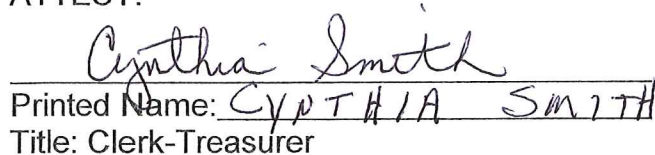 ATTEST:
Cynthia Smith
Printed Name: CYNTHIA SMITH
Title: Clerk-Treasurer